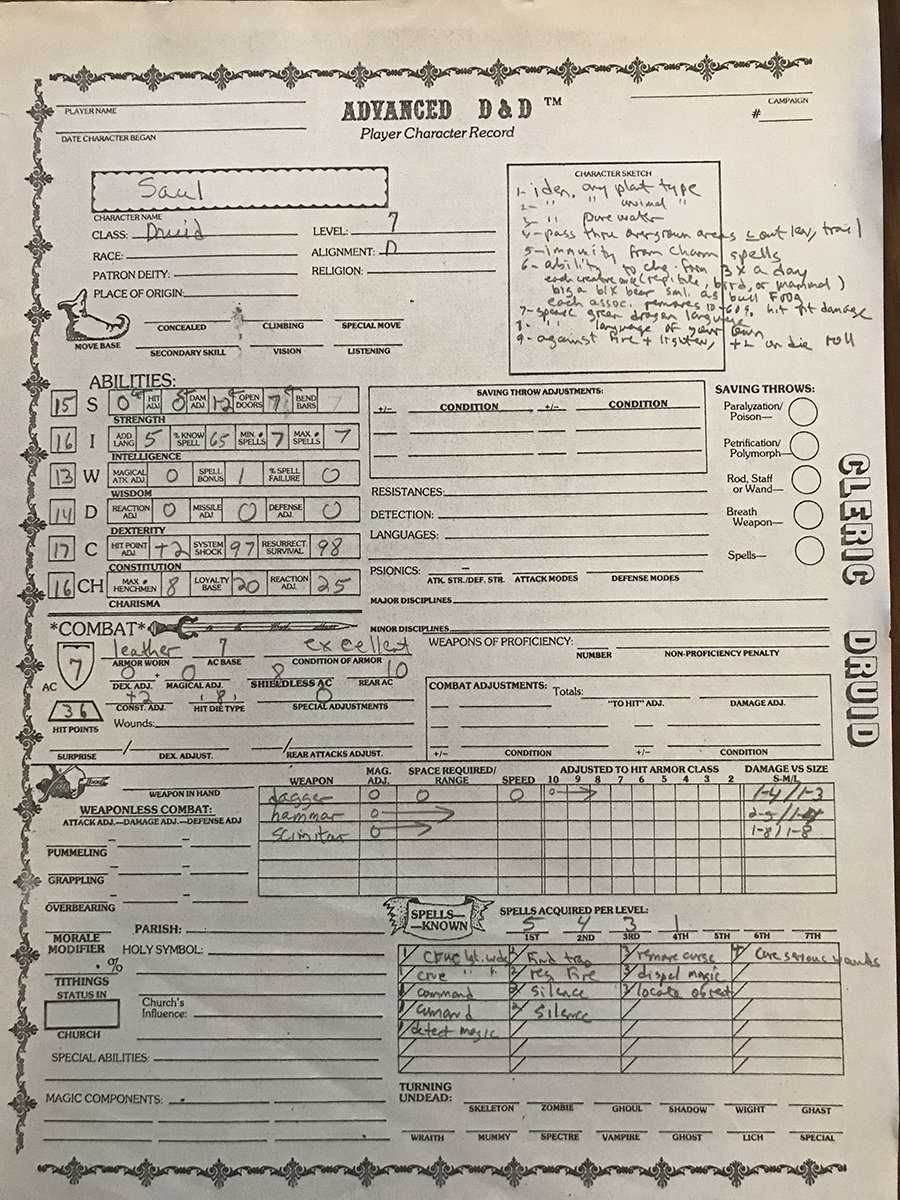 ADVANCED D&D™
Player Character Record
PLAYER NAME
DATE CHARACTER BEGAN
CAMPAIGN
#
Saul
CHARACTER NAME
CLASS: Druid LEVEL: 7
RACE: ALIGNMENT:
PATRON DEITY: RELIGION:
PLACE OF ORIGIN:
MOVE BASE
CONCEALED CLIMBING SPECIAL MOVE
SECONDARY SKILL VISION LISTENING
CHARACTER SKETCH
1- iden. any plat type
2- " " animal "
3- " " pure water
4- pass thru overgrown areas
5- immunity from charm spells
6- ability to chg. form 3x a day
each creature once (reptile, bird, or mammal)
big a blk bear sml. as bull frog
each assoc. removes 10-60% hit pt damage
7- speak green dragon language
8- " language of your own
9- against fire + lighten, +2 on die roll
ABILITIES:
15 S HIT ADJ DAM ADJ 1-2 OPEN DOORS 7% BEND BARS
STRENGTH
16 I ADD LANG 5 % KNOW SPELL 65 MIN # SPELLS 7 MAX # SPELLS 7
INTELLIGENCE
13 W MAGICAL ATK ADJ 0 SPELL BONUS 1 % SPELL FAILURE 0
WISDOM
14 D REACTION ADJ 0 MISSILE ADJ 0 DEFENSE ADJ 0
DEXTERITY
17 C HIT POINT ADJ +2 SYSTEM SHOCK 97 RESURRECT. SURVIVAL 98
CONSTITUTION
16 CH MAX # HENCHMEN 8 LOYALTY BASE 20 REACTION ADJ 25
CHARISMA
SAVING THROW ADJUSTMENTS:
+/- CONDITION +/- CONDITION
RESISTANCES:
DETECTION:
LANGUAGES:
PSIONICS
ATK. STR./DEF. STR. ATTACK MODES DEFENSE MODES
MAJOR DISCIPLINES
MINOR DISCIPLINES
SAVING THROWS:
Paralyzation/
Poison—
Petrification/
Polymorph—
Rod, Staff
or Wand—
Breath
Weapon—
Spells—
CLERIC DRUID
*COMBAT*
leather 7 excellent
ARMOR WORN AC BASE CONDITION OF ARMOR
AC 7
0 + 0 8 10
DEX. ADJ. MAGICAL ADJ. SHIELDLESS AC REAR AC
+2 8 0
CONST. ADJ. HIT DIE TYPE SPECIAL ADJUSTMENTS
36
HIT POINTS
Wounds:
SURPRISE DEX. ADJUST. REAR ATTACKS ADJUST.
WEAPONS OF PROFICIENCY:
NUMBER NON-PROFICIENCY PENALTY
COMBAT ADJUSTMENTS: Totals:
"TO HIT" ADJ. DAMAGE ADJ.
+/- CONDITION +/- CONDITION
WEAPON IN HAND
WEAPONLESS COMBAT:
ATTACK ADJ.—DAMAGE ADJ.—DEFENSE ADJ
PUMMELING
GRAPPLING
OVERBEARING
WEAPON MAG. ADJ. SPACE REQUIRED/RANGE SPEED ADJUSTED TO HIT ARMOR CLASS DAMAGE VS SIZE
10 9 8 7 6 5 4 3 2 S-M/L
dagger 0 0 0 0 1-4/1-3
hammar 0
scimitar 0 1-8/1-8
MORALE
MODIFIER
. %
TITHINGS
STATUS IN
CHURCH
PARISH:
HOLY SYMBOL:
Church's
Influence:
SPECIAL ABILITIES:
MAGIC COMPONENTS:
SPELLS—
—KNOWN
SPELLS ACQUIRED PER LEVEL:
5 4 3 1
1ST 2ND 3RD 4TH 5TH 6TH 7TH
1 cure lgt. wds 2 Find trap 3 remove curse 4 Cure serious wounds
1 cure " " 2 res Fire 3 dispel magic
1 command 2 silence 3 locate object
1 comand 2 silence
1 detect magic
TURNING
UNDEAD:
SKELETON ZOMBIE GHOUL SHADOW WIGHT GHAST
WRAITH MUMMY SPECTRE VAMPIRE GHOST LICH SPECIAL